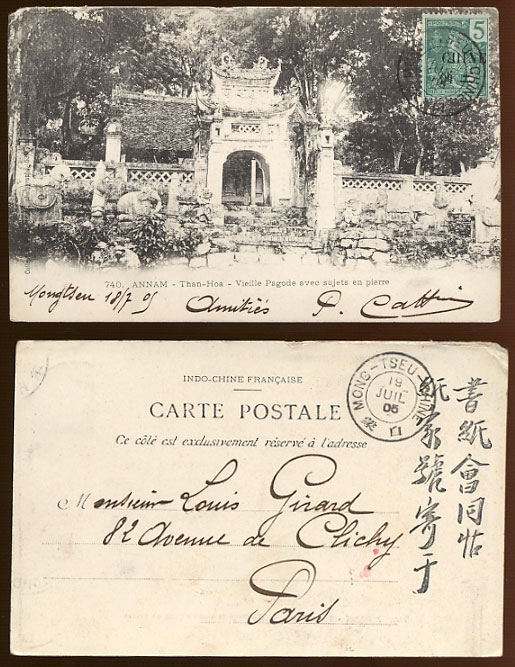 5
CHINE
740. ANNAM - Than-Hoa - Vieille Pagode avec sujets en pierre
Mongtseu 18/7 05 Amitiés P.
INDO-CHINE FRANÇAISE
CARTE POSTALE
Ce côté est exclusivement réservé à l'adresse
MONG-TSEU CHINE
19
JUIL
05
蒙自
Monsieur Louis Girard
82 Avenue de Clichy
Paris
書紙會同帖
紙家號寄于